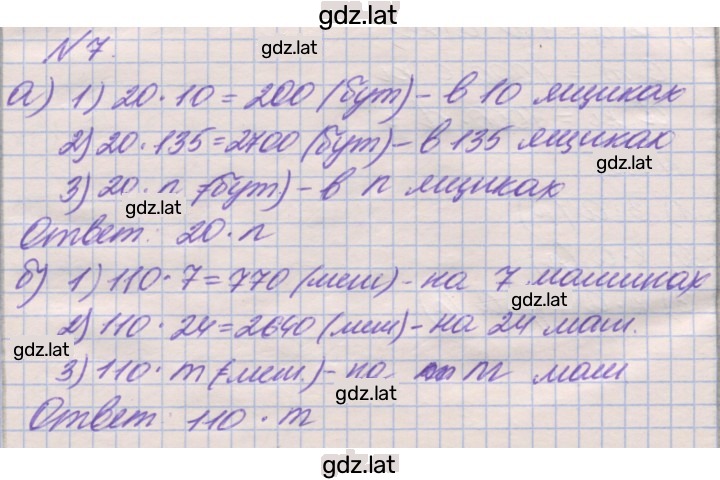 gdz.lat
№7.
gdz.lat
а) 1) 20·10=200 (бут) - в 10 ящиках
2) 20·135=2700 (бут) - в 135 ящиках
gdz.lat
3) 20·n (бут) - в n ящиках
gdz.lat
Ответ: 20·n
б) 1) 110·7=770 (меш) - на 7 машинах
gdz.lat
2) 110·24=2640 (меш) - на 24 маш.
gdz.lat
3) 110·m (меш.) - на m маш
gdz.lat
Ответ 110·m
gdz.lat